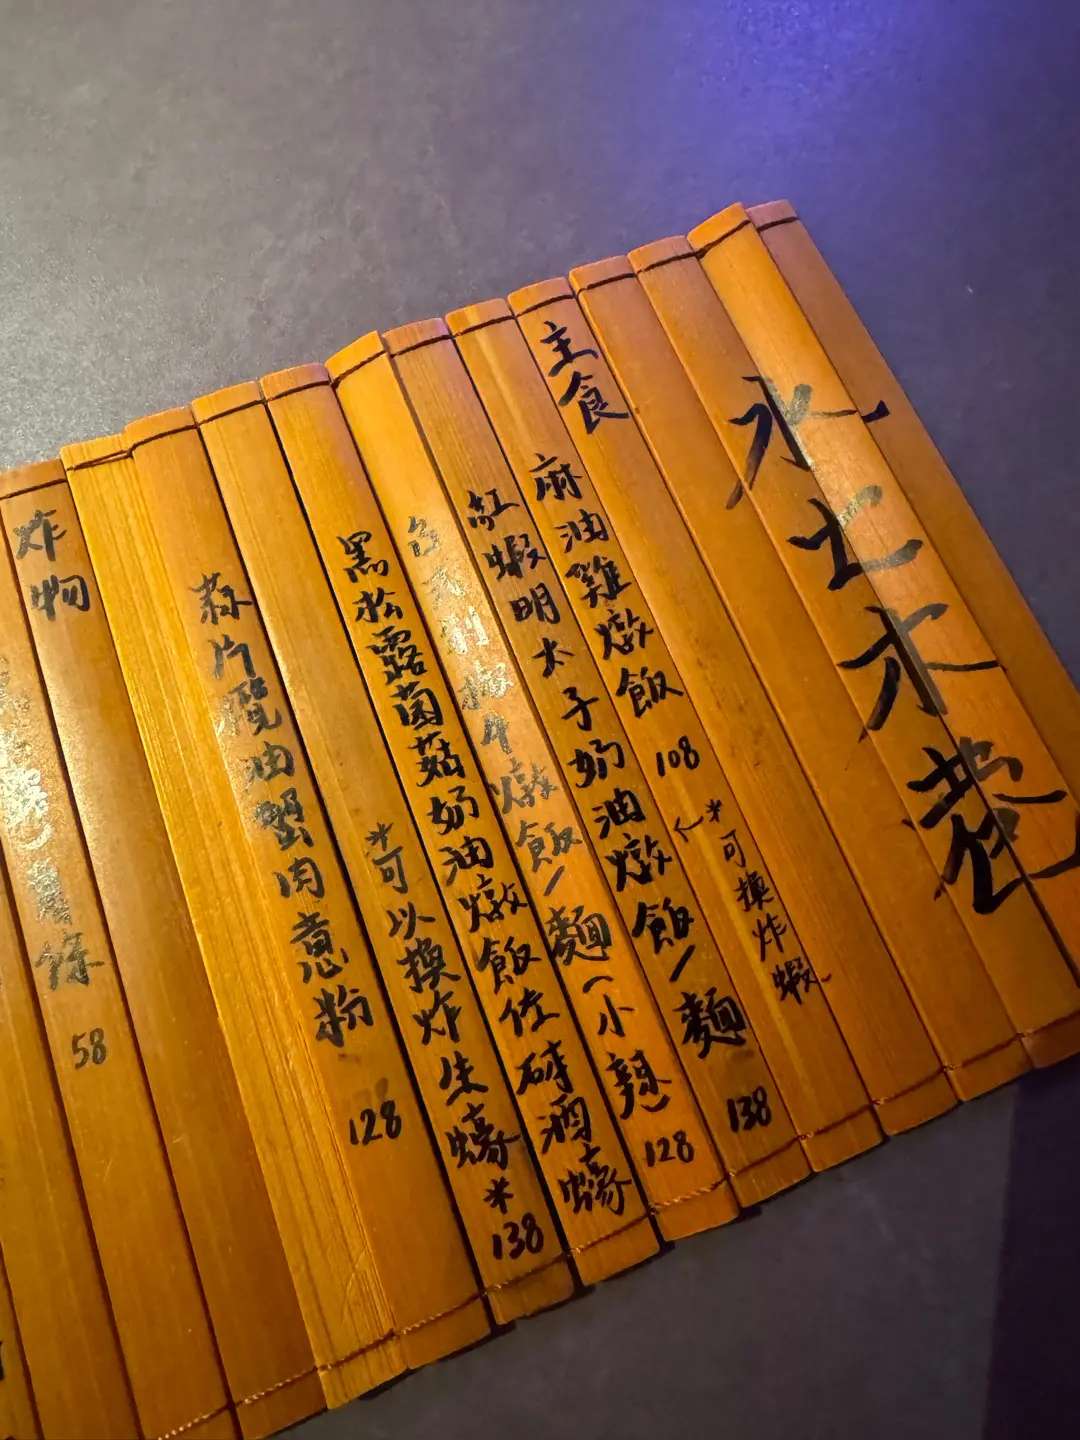 水土木巷
主食
麻油雞燉飯 108
←*可換炸蝦
紅蝦明太子奶油燉飯/麵 138
剁椒牛燉飯/麵(小辣) 128
黑松露菌菇奶油燉飯佐砵酒蠔
*可以換炸生蠔* 138
蒜片欖油蟹肉意粉 128
炸物
薯條 58